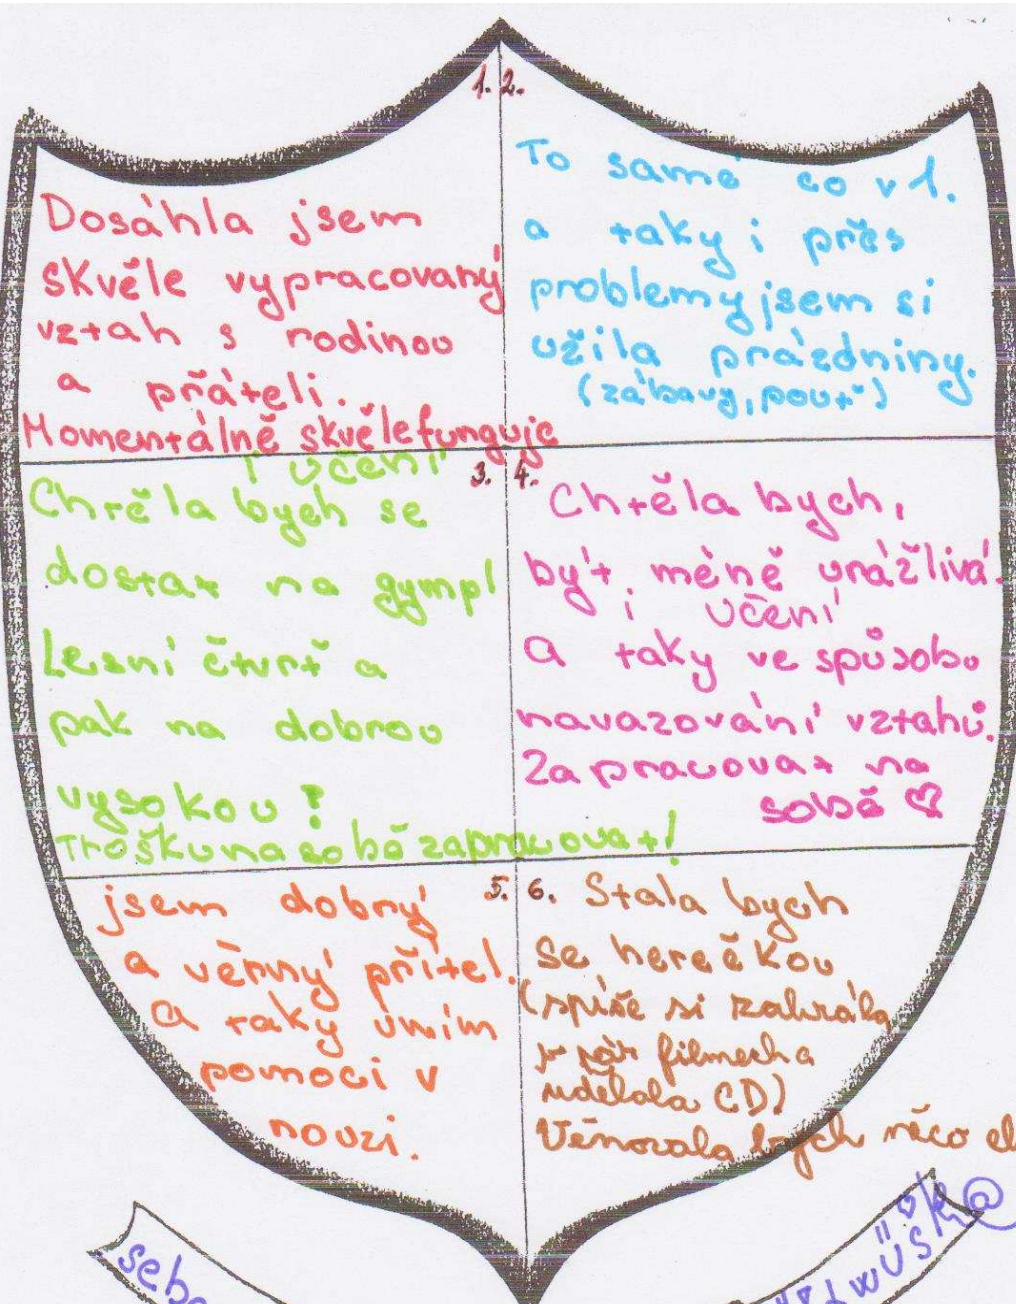 1.
Dosáhla jsem
skvěle vypracovaný
vztah s rodinou
a přáteli.
Momentálně skvěle funguje
i učení
2.
To samé co v 1.
a taky i přes
problemy jsem si
užila prázdniny.
(zábavy, pouť)
3.
Chtěla bych se
dostat na gympl
Lesní čtvrť a
pak na dobrou
vysokou?
Trošku na sobě zapracovat!
4.
Chtěla bych,
být méně urážlivá.
i učení
a taky ve spůsobu
navazování vztahů.
Zapracovat na
sobě
5.
jsem dobrý
a věrný přítel.
a taky umím
pomoci v
nouzi.
6. Stala bych
se herečkou
(spíše si zahrála
v pár filmech a
udělala CD)
Věnovala bych něco